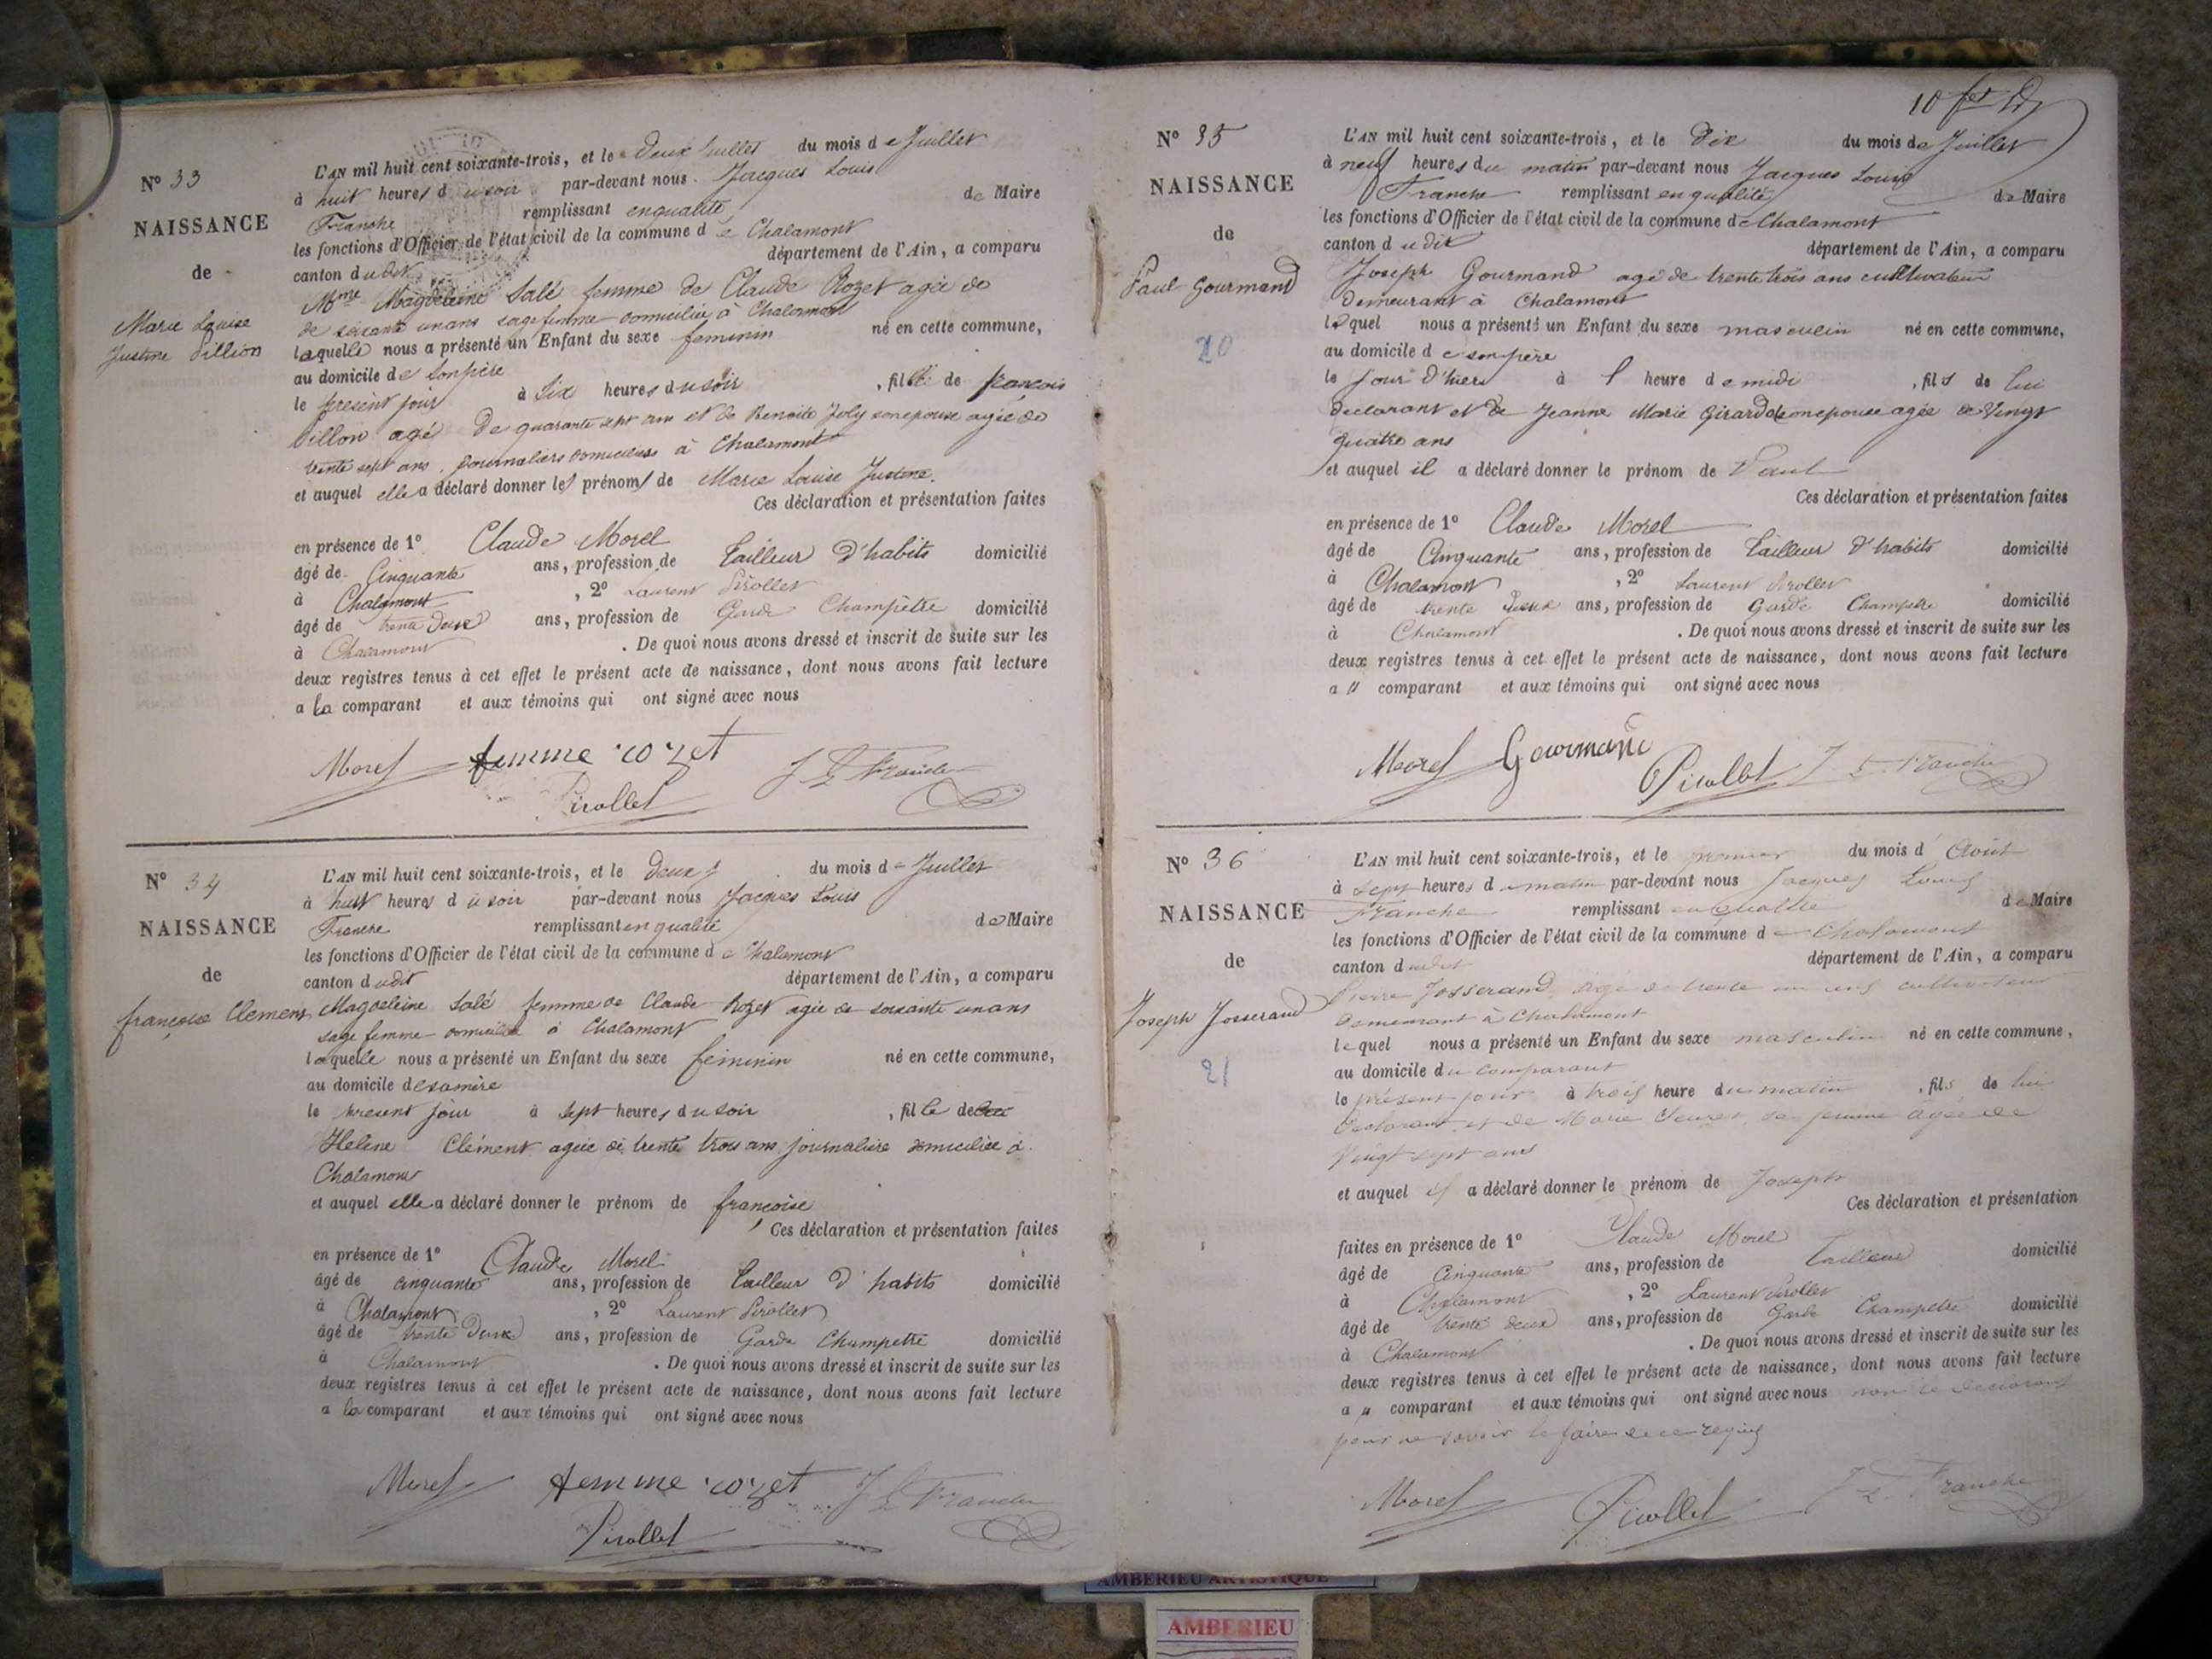 N° 33
NAISSANCE
de
Marie Louise
Justine Dillion
L'AN mil huit cent soixante-trois, et le deux Juillet du mois de Juillet
à huit heures du soir par-devant nous Jacques Louis
Franche remplissant en qualité de Maire
les fonctions d'Officier de l'état civil de la commune de Chalamont
canton dudit département de l'Ain, a comparu
Mme Magdeleine Salé femme de Claude Rozet agée de
de soixante un ans sage femme domiciliée à Chalamont
laquelle nous a présenté un Enfant du sexe feminin né en cette commune,
au domicile de son père
le present jour à Six heures du soir , fille de françois
Dillon agé de quarante sept ans et de Benoite Joly son epouse agée de
trente sept ans, journaliers domiciliés à Chalamont
et auquel elle a déclaré donner les prénoms de Marie Louise Justine.
Ces déclaration et présentation faites
en présence de 1° Claude Morel
âgé de Cinquante ans, profession de Tailleur d'habits domicilié
à Chalamont , 2° Laurent Pirollet
âgé de trente deux ans, profession de Garde Champêtre domicilié
à Chalamont . De quoi nous avons dressé et inscrit de suite sur les
deux registres tenus à cet effet le présent acte de naissance, dont nous avons fait lecture
a la comparant et aux témoins qui ont signé avec nous
Morel femme rozet J L Franche
Pirollet
N° 34
NAISSANCE
de
françoise Clement
L'AN mil huit cent soixante-trois, et le deux du mois de Juillet
à huit heures du soir par-devant nous Jacques Louis
Franche remplissant en qualité de Maire
les fonctions d'Officier de l'état civil de la commune de Chalamont
canton dudit département de l'Ain, a comparu
Magdeleine Salé femme de Claude Rozet agée de soixante un ans
sage femme domiciliée à Chalamont
laquelle nous a présenté un Enfant du sexe feminin né en cette commune,
au domicile de sa mère
le present jour à sept heures du soir , fille de
Helene Clément agée de trente trois ans journaliere domiciliée à
Chalamont
et auquel elle a déclaré donner le prénom de françoise
Ces déclaration et présentation faites
en présence de 1° Claude Morel
âgé de cinquante ans, profession de Tailleur d'habits domicilié
à Chalamont , 2° Laurent Pirollet
âgé de trente deux ans, profession de Garde Champetre domicilié
à Chalamont . De quoi nous avons dressé et inscrit de suite sur les
deux registres tenus à cet effet le présent acte de naissance, dont nous avons fait lecture
a la comparant et aux témoins qui ont signé avec nous
Morel femme rozet J L Franche
Pirollet
10
N° 35
NAISSANCE
de
Paul Gourmand
20
L'AN mil huit cent soixante-trois, et le Dix du mois de Juillet
à neuf heures du matin par-devant nous Jacques Louis
Franche remplissant en qualité de Maire
les fonctions d'Officier de l'état civil de la commune de Chalamont
canton dudit département de l'Ain, a comparu
Joseph Gourmand agé de trente trois ans cultivateur
demeurant à Chalamont
lequel nous a présenté un Enfant du sexe masculin né en cette commune,
au domicile de son père
le jour d'hier à 1 heure de midi , fils de lui
declarant et de Jeanne Marie Girard son epouse agée de Vingt
quatre ans
et auquel il a déclaré donner le prénom de Paul
Ces déclaration et présentation faites
en présence de 1° Claude Morel
âgé de Cinquante ans, profession de Tailleur d'habits domicilié
à Chalamont , 2° Laurent Pirollet
âgé de trente deux ans, profession de Garde Champetre domicilié
à Chalamont . De quoi nous avons dressé et inscrit de suite sur les
deux registres tenus à cet effet le présent acte de naissance, dont nous avons fait lecture
a u comparant et aux témoins qui ont signé avec nous
Morel Gourmand Pirollet J L Franche
N° 36
NAISSANCE
de
Joseph Josserand
21
L'AN mil huit cent soixante-trois, et le premier du mois d' Août
à sept heures du matin par-devant nous Jacques Louis
Franche remplissant en qualité de Maire
les fonctions d'Officier de l'état civil de la commune de Chalamont
canton dudit département de l'Ain, a comparu
Pierre Josserand agé de trente un ans cultivateur
demeurant à Chalamont
lequel nous a présenté un Enfant du sexe masculin né en cette commune,
au domicile du comparant
le présent jour à trois heure du matin , fils de lui
declarant et de Marie sa femme âgée de
vingt sept ans
et auquel il a déclaré donner le prénom de Joseph
Ces déclaration et présentation
faites en présence de 1° Claude Morel
âgé de Cinquante ans, profession de Tailleur domicilié
à Chalamont , 2° Laurent Pirollet
âgé de trente deux ans, profession de Garde Champetre domicilié
à Chalamont . De quoi nous avons dressé et inscrit de suite sur les
deux registres tenus à cet effet le présent acte de naissance, dont nous avons fait lecture
a u comparant et aux témoins qui ont signé avec nous non le declarant
pour ne savoir le faire de ce requis
Morel Pirollet J L Franche
AMBERIEU ARTISTIQUE
AMBERIEU